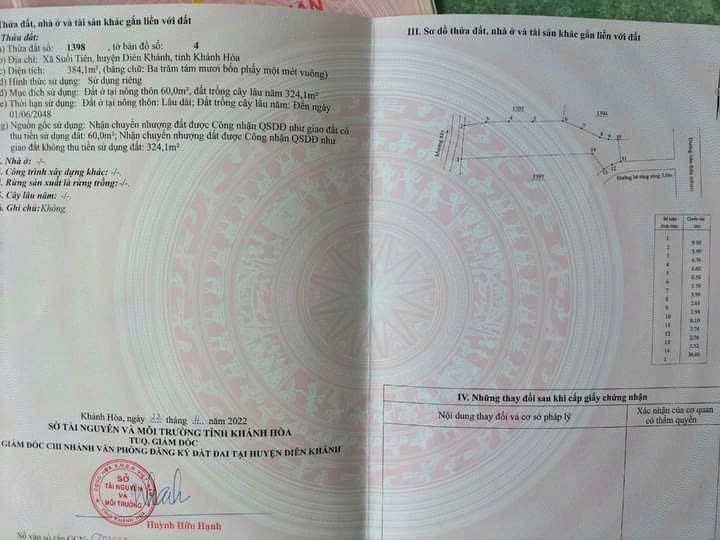 Thửa đất, nhà ở và tài sản khác gắn liền với đất
Thửa đất:
a) Thửa đất số: 1398, tờ bản đồ số: 4
b) Địa chỉ: Xã Suối Tiên, huyện Diên Khánh, tỉnh Khánh Hòa
c) Diện tích: 384,1m², (bằng chữ: Ba trăm tám mươi bốn phẩy một mét vuông)
d) Hình thức sử dụng: Sử dụng riêng
đ) Mục đích sử dụng: Đất ở tại nông thôn 60,0m², đất trồng cây lâu năm 324,1m²
e) Thời hạn sử dụng: Đất ở tại nông thôn: Lâu dài; Đất trồng cây lâu năm: Đến ngày
01/06/2048
g) Nguồn gốc sử dụng: Nhận chuyển nhượng đất được Công nhận QSDĐ như giao đất có
thu tiền sử dụng đất: 60,0m²; Nhận chuyển nhượng đất được Công nhận QSDĐ như
giao đất không thu tiền sử dụng đất: 324,1m²
. Nhà ở: -/-
. Công trình xây dựng khác: -/-
. Rừng sản xuất là rừng trồng:-/-
. Cây lâu năm: -/-
. Ghi chú:Không.
Khánh Hòa, ngày 22 tháng 4 năm 2022
SỞ TÀI NGUYÊN VÀ MÔI TRƯỜNG TỈNH KHÁNH HÒA
TUQ. GIÁM ĐỐC
GIÁM ĐỐC CHI NHÁNH VĂN PHÒNG ĐĂNG KÝ ĐẤT ĐAI TẠI HUYỆN DIÊN KHÁNH
SỞ
TÀI NGUYÊN
VÀ
MÔI TRƯỜNG
Huỳnh Hữu Hạnh
III. Sơ đồ thửa đất, nhà ở và tài sản khác gắn liền với đất
Mương xây
Đường bê tông rộng 3,0m
Số hiệu
Chiều dài
(m)
IV. Những thay đổi sau khi cấp giấy chứng nhận
Nội dung thay đổi và cơ sở pháp lý
Xác nhận của cơ quan
có thẩm quyền